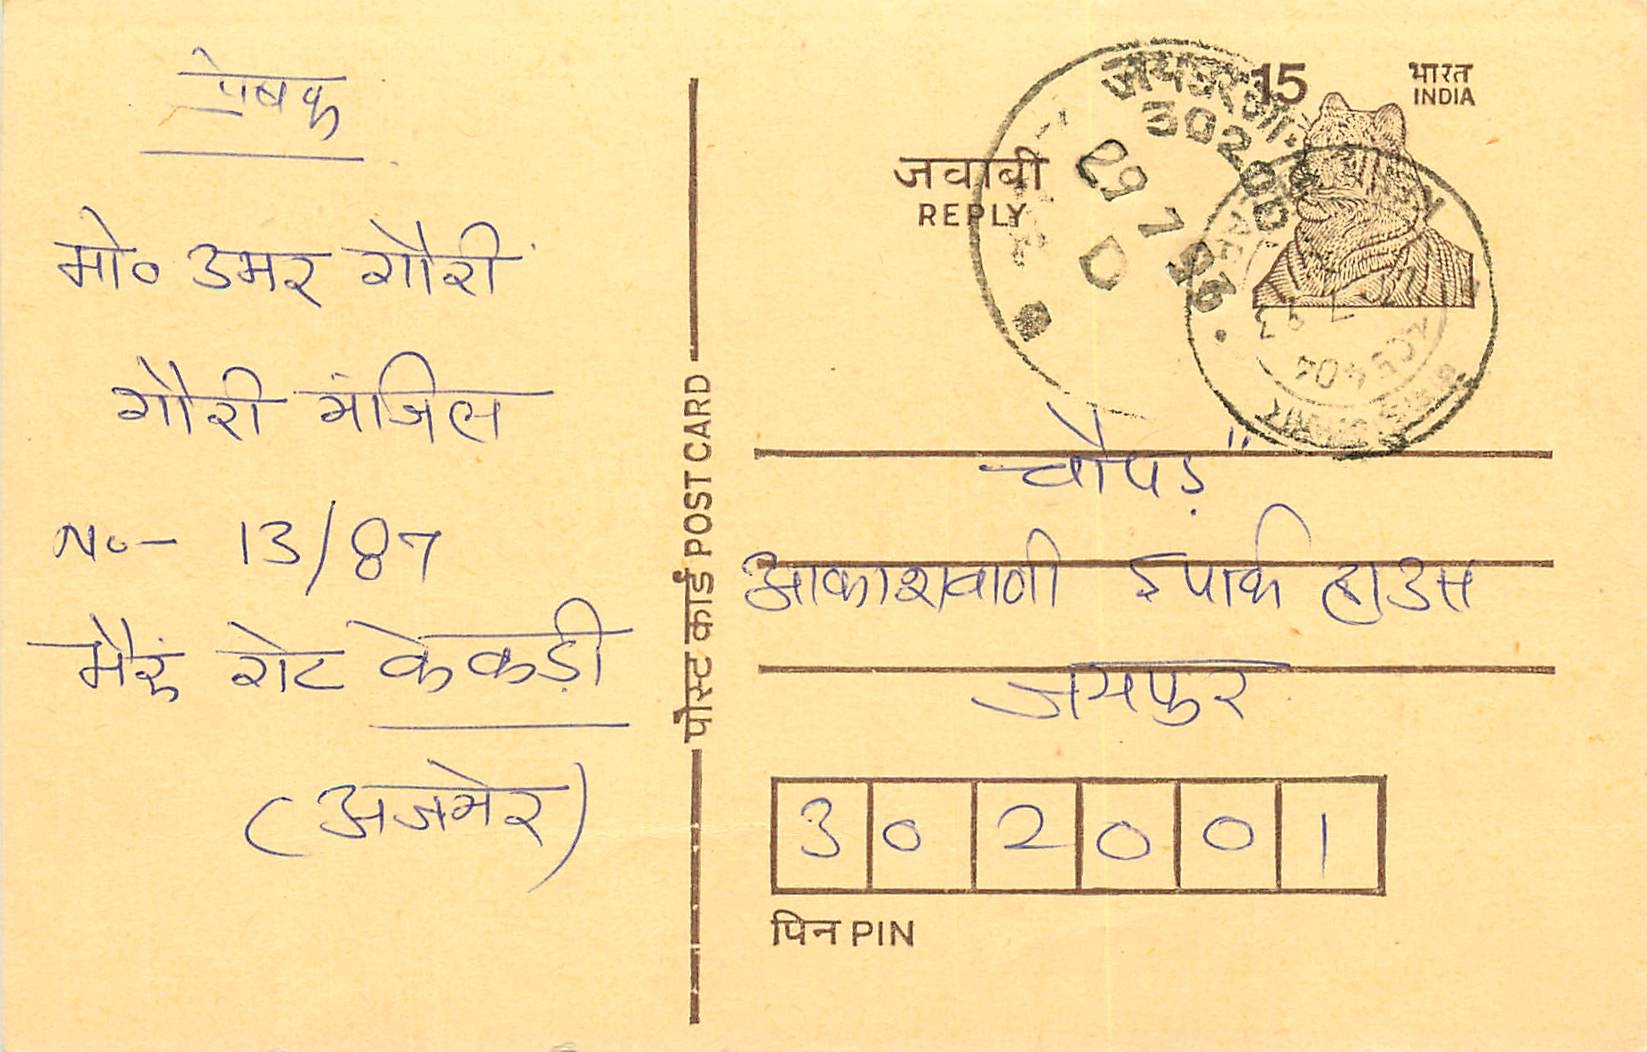 प्रेषक
मो० उमर गौरी
गौरी मंजिल
No- 13/87
भैरूं गेट केकड़ी
(अजमेर)
पोस्ट कार्ड POST CARD
15
भारत
INDIA
जवाबी
REPLY
30200
29 7 93
D
चौपड़
आकाशवाणी पार्क हाउस
जयपुर
302001
पिन PIN